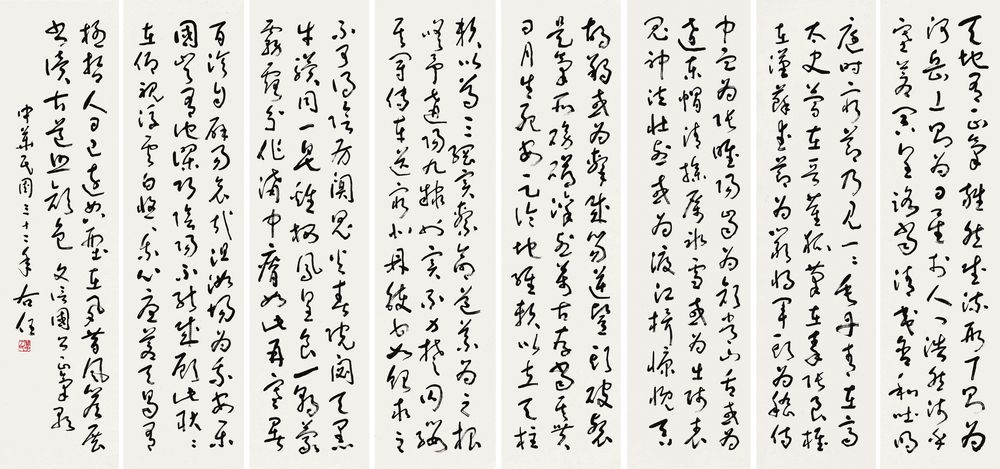 天地有正氣雜然賦流形下則為
河嶽上則為日星於人曰浩然沛乎
塞蒼冥皇路當清夷含和吐明
庭時窮節乃見一一垂丹青在齊
太史簡在晉董狐筆在秦張良椎
在漢蘇武節為嚴將軍頭為嵇侍
中血為張睢陽齒為顏常山舌或為
遼東帽清操厲冰雪或為出師表
鬼神泣壯烈或為渡江楫慷慨吞
胡羯或為擊賊笏逆豎頭破裂
是氣所磅礴凜烈萬古存當其貫
日月生死安足論地維賴以立天柱
賴以尊三綱實繫命道義為之根
嗟予遘陽九隸也實不力楚囚纓
其冠傳車送窮北鼎鑊甘如飴求之
不可得陰房闃鬼火春院閟天黑
牛驥同一皂雞棲鳳皇食一朝蒙
霧露分作溝中瘠如此再寒暑
百沴自辟易哀哉沮洳場為我安樂
國豈有他繆巧陰陽不能賊顧此耿耿
在仰視浮雲白悠悠我心悲蒼天曷有
極哲人日已遠典型在夙昔風簷展
書讀古道照顏色 文信國公正氣歌
中華民國三十二年 右任